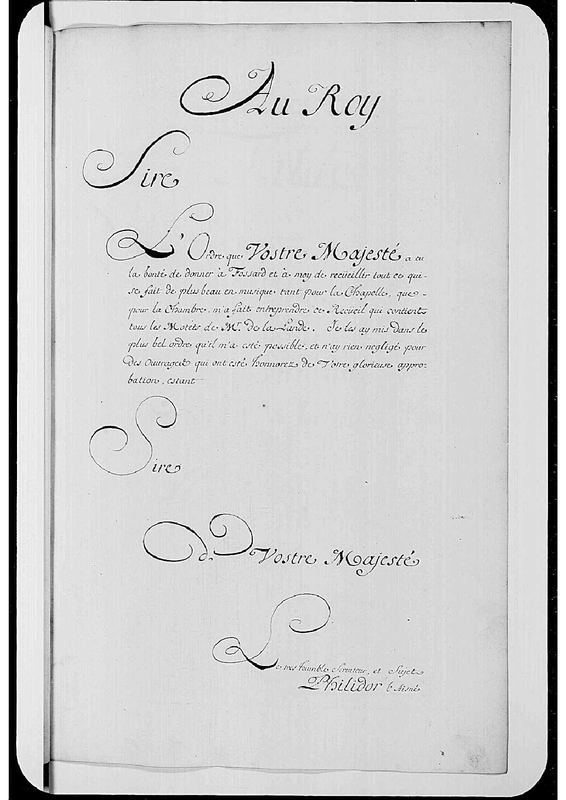 Au Roy
Sire
L'Ordre que Vostre Majesté a eu
la bonté de donner a Fossard et a moy de recüeillir tout ce qui-
se fait de plus beau en musique tant pour la Chapelle, que-
pour la Chambre, m'a fait entreprendre ce Recueil qui contient
tous les Motets de Mr. de la Lande. Je les ay mis dans le
plus bel ordre qu'il m'a esté possible, et n'ay rien negligé pour
des Ouvrages qui ont esté honnorez de Votre glorieuse appro-
bation, estant
Sire
de Vostre Majesté
Le tres humble Serviteur, et Sujet
Philidor l'Aisné